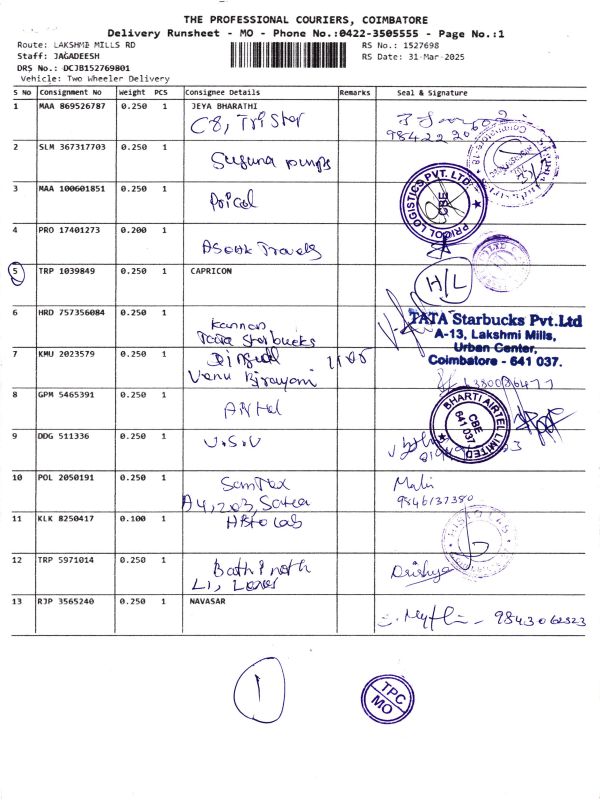 THE PROFESSIONAL COURIERS, COIMBATORE
Delivery Runsheet - MO - Phone No.:0422-3505555 - Page No.:1
Route: LAKSHMI MILLS RD
RS No.: 1527698
Staff: JAGADEESH
RS Date: 31-Mar-2025
DRS No.: DCJB152769801
Vehicle: Two Wheeler Delivery
S No Consignment No Weight PCS Consignee Details Remarks Seal & Signature
1 MAA 869526787 0.250 1 JEYA BHARATHI
C8, TriStar
2 SLM 367317703 0.250 1
Suguna pumps
3 MAA 100601851 0.250 1
Pricol
PRICOL LOGISTICS PVT. LTD.
CBE
4 PRO 17401273 0.200 1
Asok Travels
5 TRP 1039849 0.250 1 CAPRICON
H/L
6 HRD 757356084 0.250 1
Kannan
Tata Starbucks
TATA Starbucks Pvt.Ltd
A-13, Lakshmi Mills,
Urban Center,
Coimbatore - 641 037.
7 KMU 2023579 0.250 1
Venu Biriyani
8 GPM 5465391 0.250 1
Airtel
BHARTI AIRTEL LIMITED
CBE
641 037
9 DDG 511336 0.250 1
V.S.V
10 POL 2050191 0.250 1
A4, 203,
9846137380
11 KLK 8250417 0.100 1
Histo Lab
12 TRP 5971014 0.250 1
L1,
Drishya
13 RJP 3565240 0.250 1 NAVASAR
1
TPC
MO